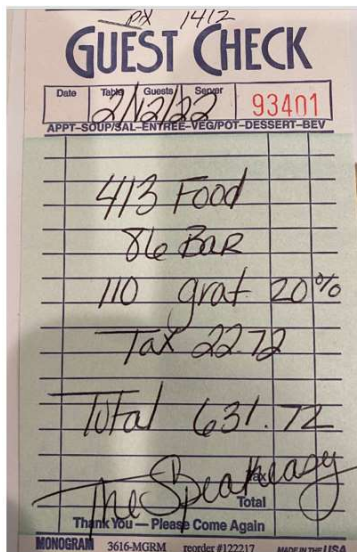 PX 1412
GUEST CHECK
Date Table Guests Server
2/12/22 93401
APPT-SOUP/SAL-ENTREE-VEG/POT-DESSERT-BEV
413 Food
86 Bar
110 grat 20%
Tax 22.72
Total 631.72
The Speakeasy
Tax
Total
Thank You — Please Come Again
MONOGRAM 3616-MGRM reorder #122217 MADE IN THE USA